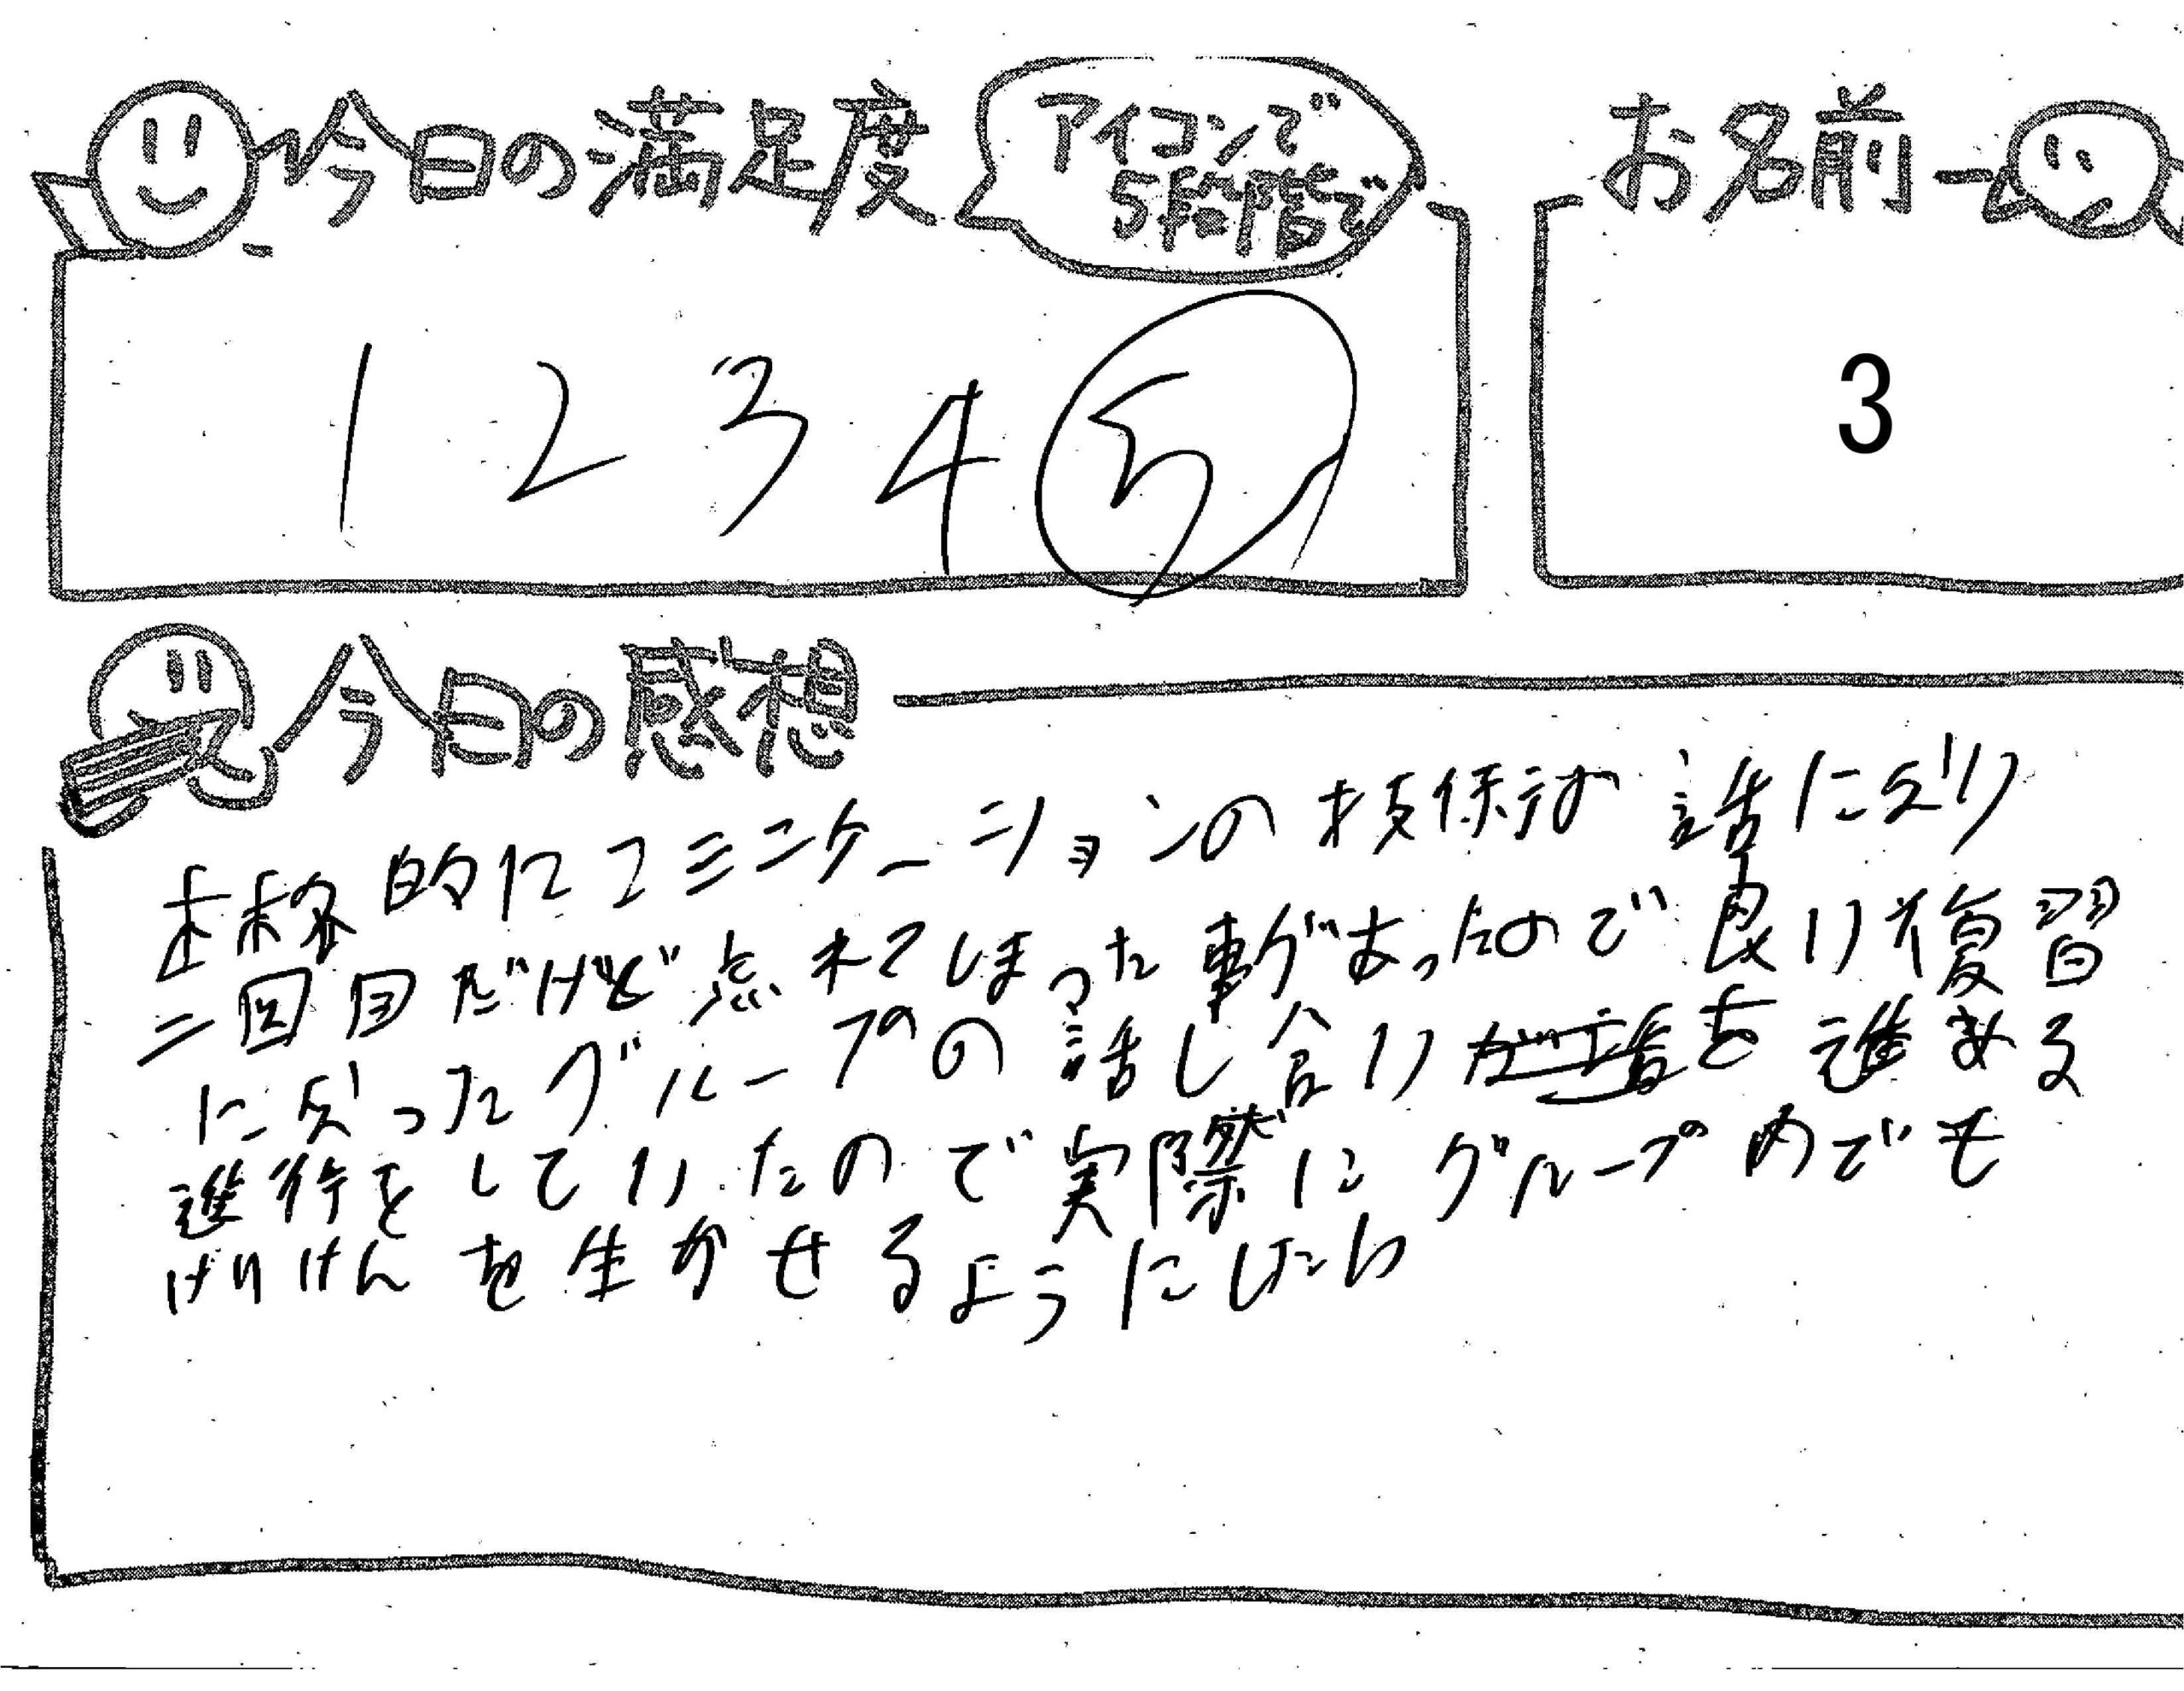 今日の満足度
アイコンで
5段階で
お名前
1 2 3 4 5
3
今日の感想
本格的にコミニケーションの技術な話になり
二回目だけど忘れてしまった事があったので良い復習
になったグループの話し合いを進める
進行をしていたので実際にグループ内でも
けいけんを生かせるようにしたい